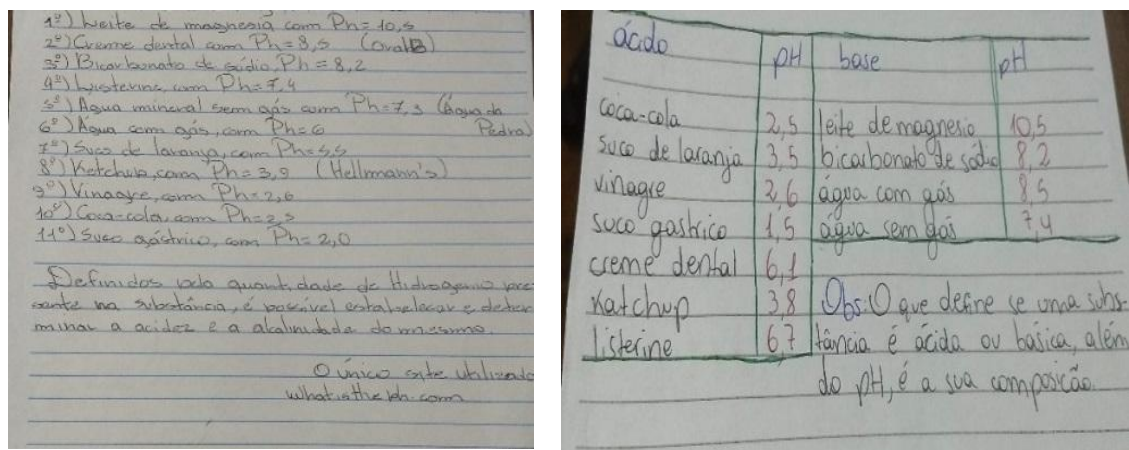 1º) Leite de magnesia com Ph= 10,5
2º) Creme dental com Ph= 8,5 (OralB)
3º) Bicarbonato de sódio, Ph= 8,2
4º) Listerine, com Ph= 7,4
5º) Agua mineral sem gás com Ph= 7,3 (Água da Pedra)
6º) Agua com gás, com Ph= 6
7º) Suco de laranja, com Ph= 5,5
8º) Ketchup, com Ph= 3,9 (Hellmann's)
9º) Vinagre, com Ph= 2,6
10º) Coca-cola, com Ph= 2,5
11º) Suco gástrico, com Ph= 2,0
Definidos pela quantidade de Hidrogenio pre
sente na substância, é possível estabelecer e deter
minar a acidez e a alcalinidade do mesmo.
O único site utilizado
whatistheph.com
ácido pH base pH
coca-cola 2,5 leite de magnesio 10,5
suco de laranja 3,5 bicarbonato de sódio 8,2
vinagre 2,6 água com gás 8,5
suco gastrico 1,5 água sem gás 7,4
creme dental 6,1
Katchup 3,8 Obs: O que define se uma subs-
listerine 6,7 tância é ácida ou básica, além
do pH, é a sua composição.